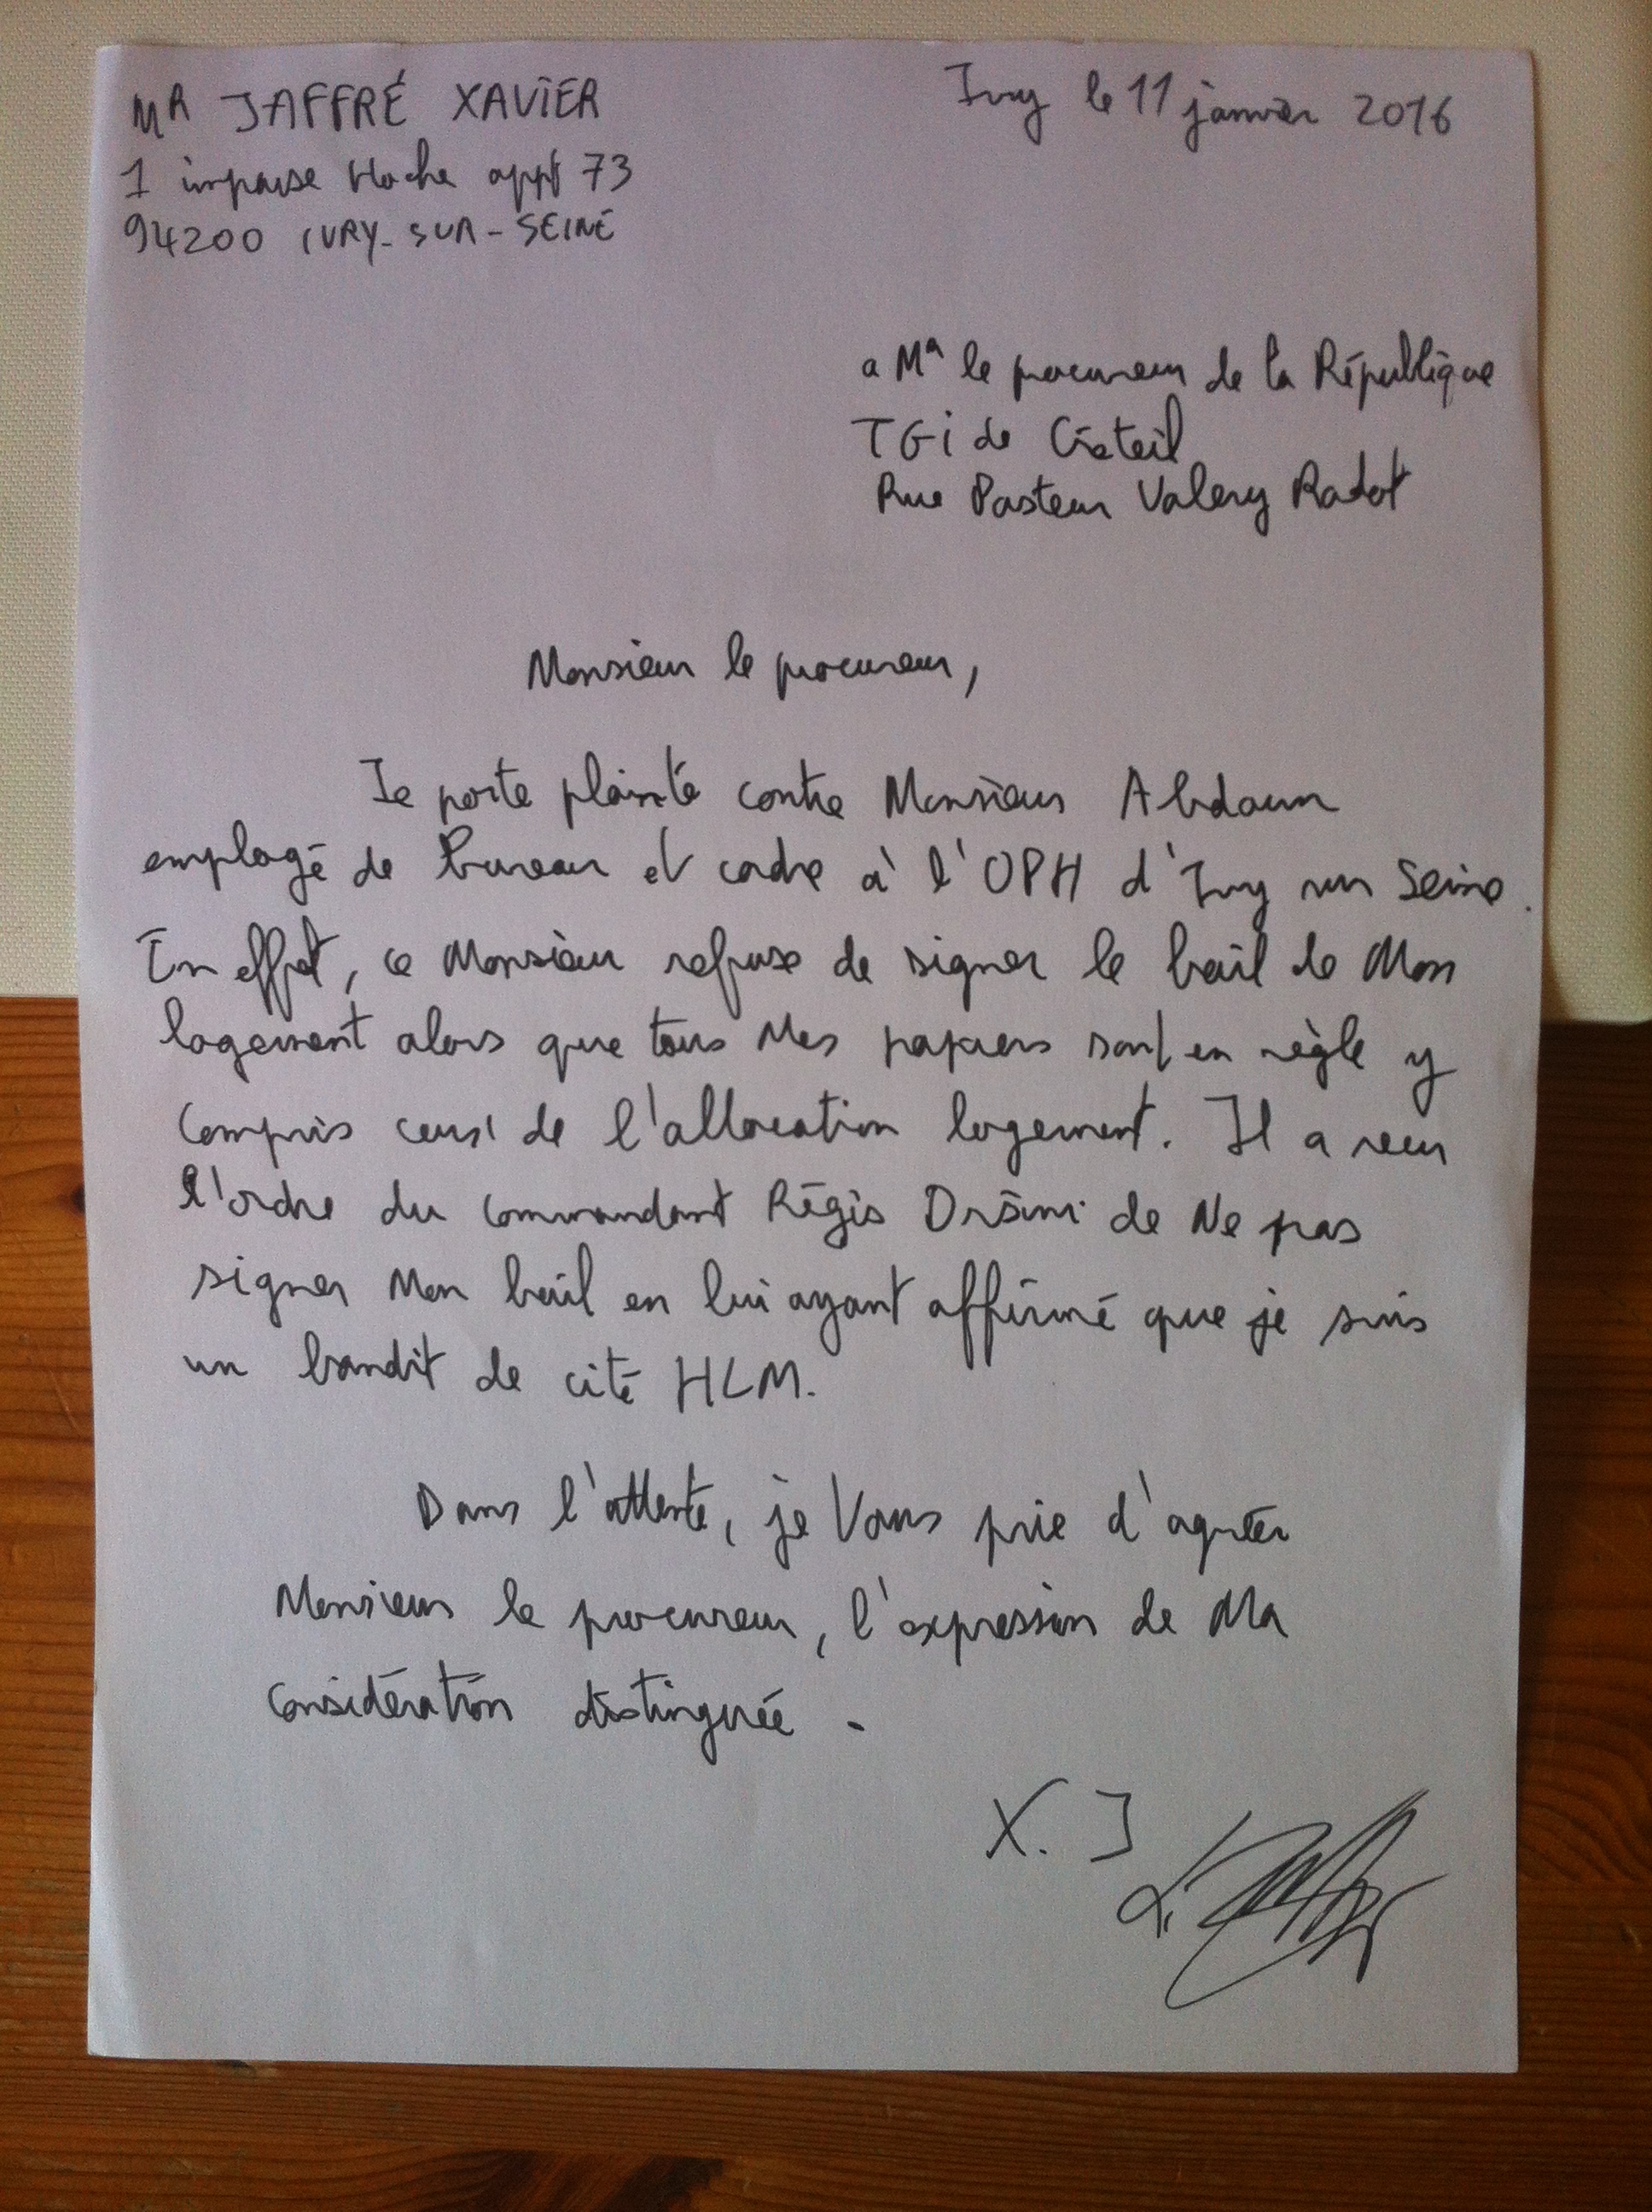 MR JAFFRÉ XAVIER
1 impasse Hoche appt 73
94200 IVRY-SUR-SEINE
Ivry le 11 janvier 2016
a MR le procureur de la République
TGi de Créteil
Rue Pasteur Valery Radot
Monsieur le procureur,
Je porte plainte contre Monsieur Abdoun
employé de bureau et cadre à l'OPH d'Ivry sur Seine.
En effet, ce Monsieur refuse de signer le bail de Mon
logement alors que tous Mes papiers sont en règle y
compris ceux de l'allocation logement. Il a recu
l'ordre du commandant Régis de Ne pas
signer Mon bail en lui ayant affirmé que je suis
un bandit de cité HLM.
Dans l'attente, je Vous prie d'agréer
Monsieur le procureur, l'expression de Ma
considération distinguée.
X. J